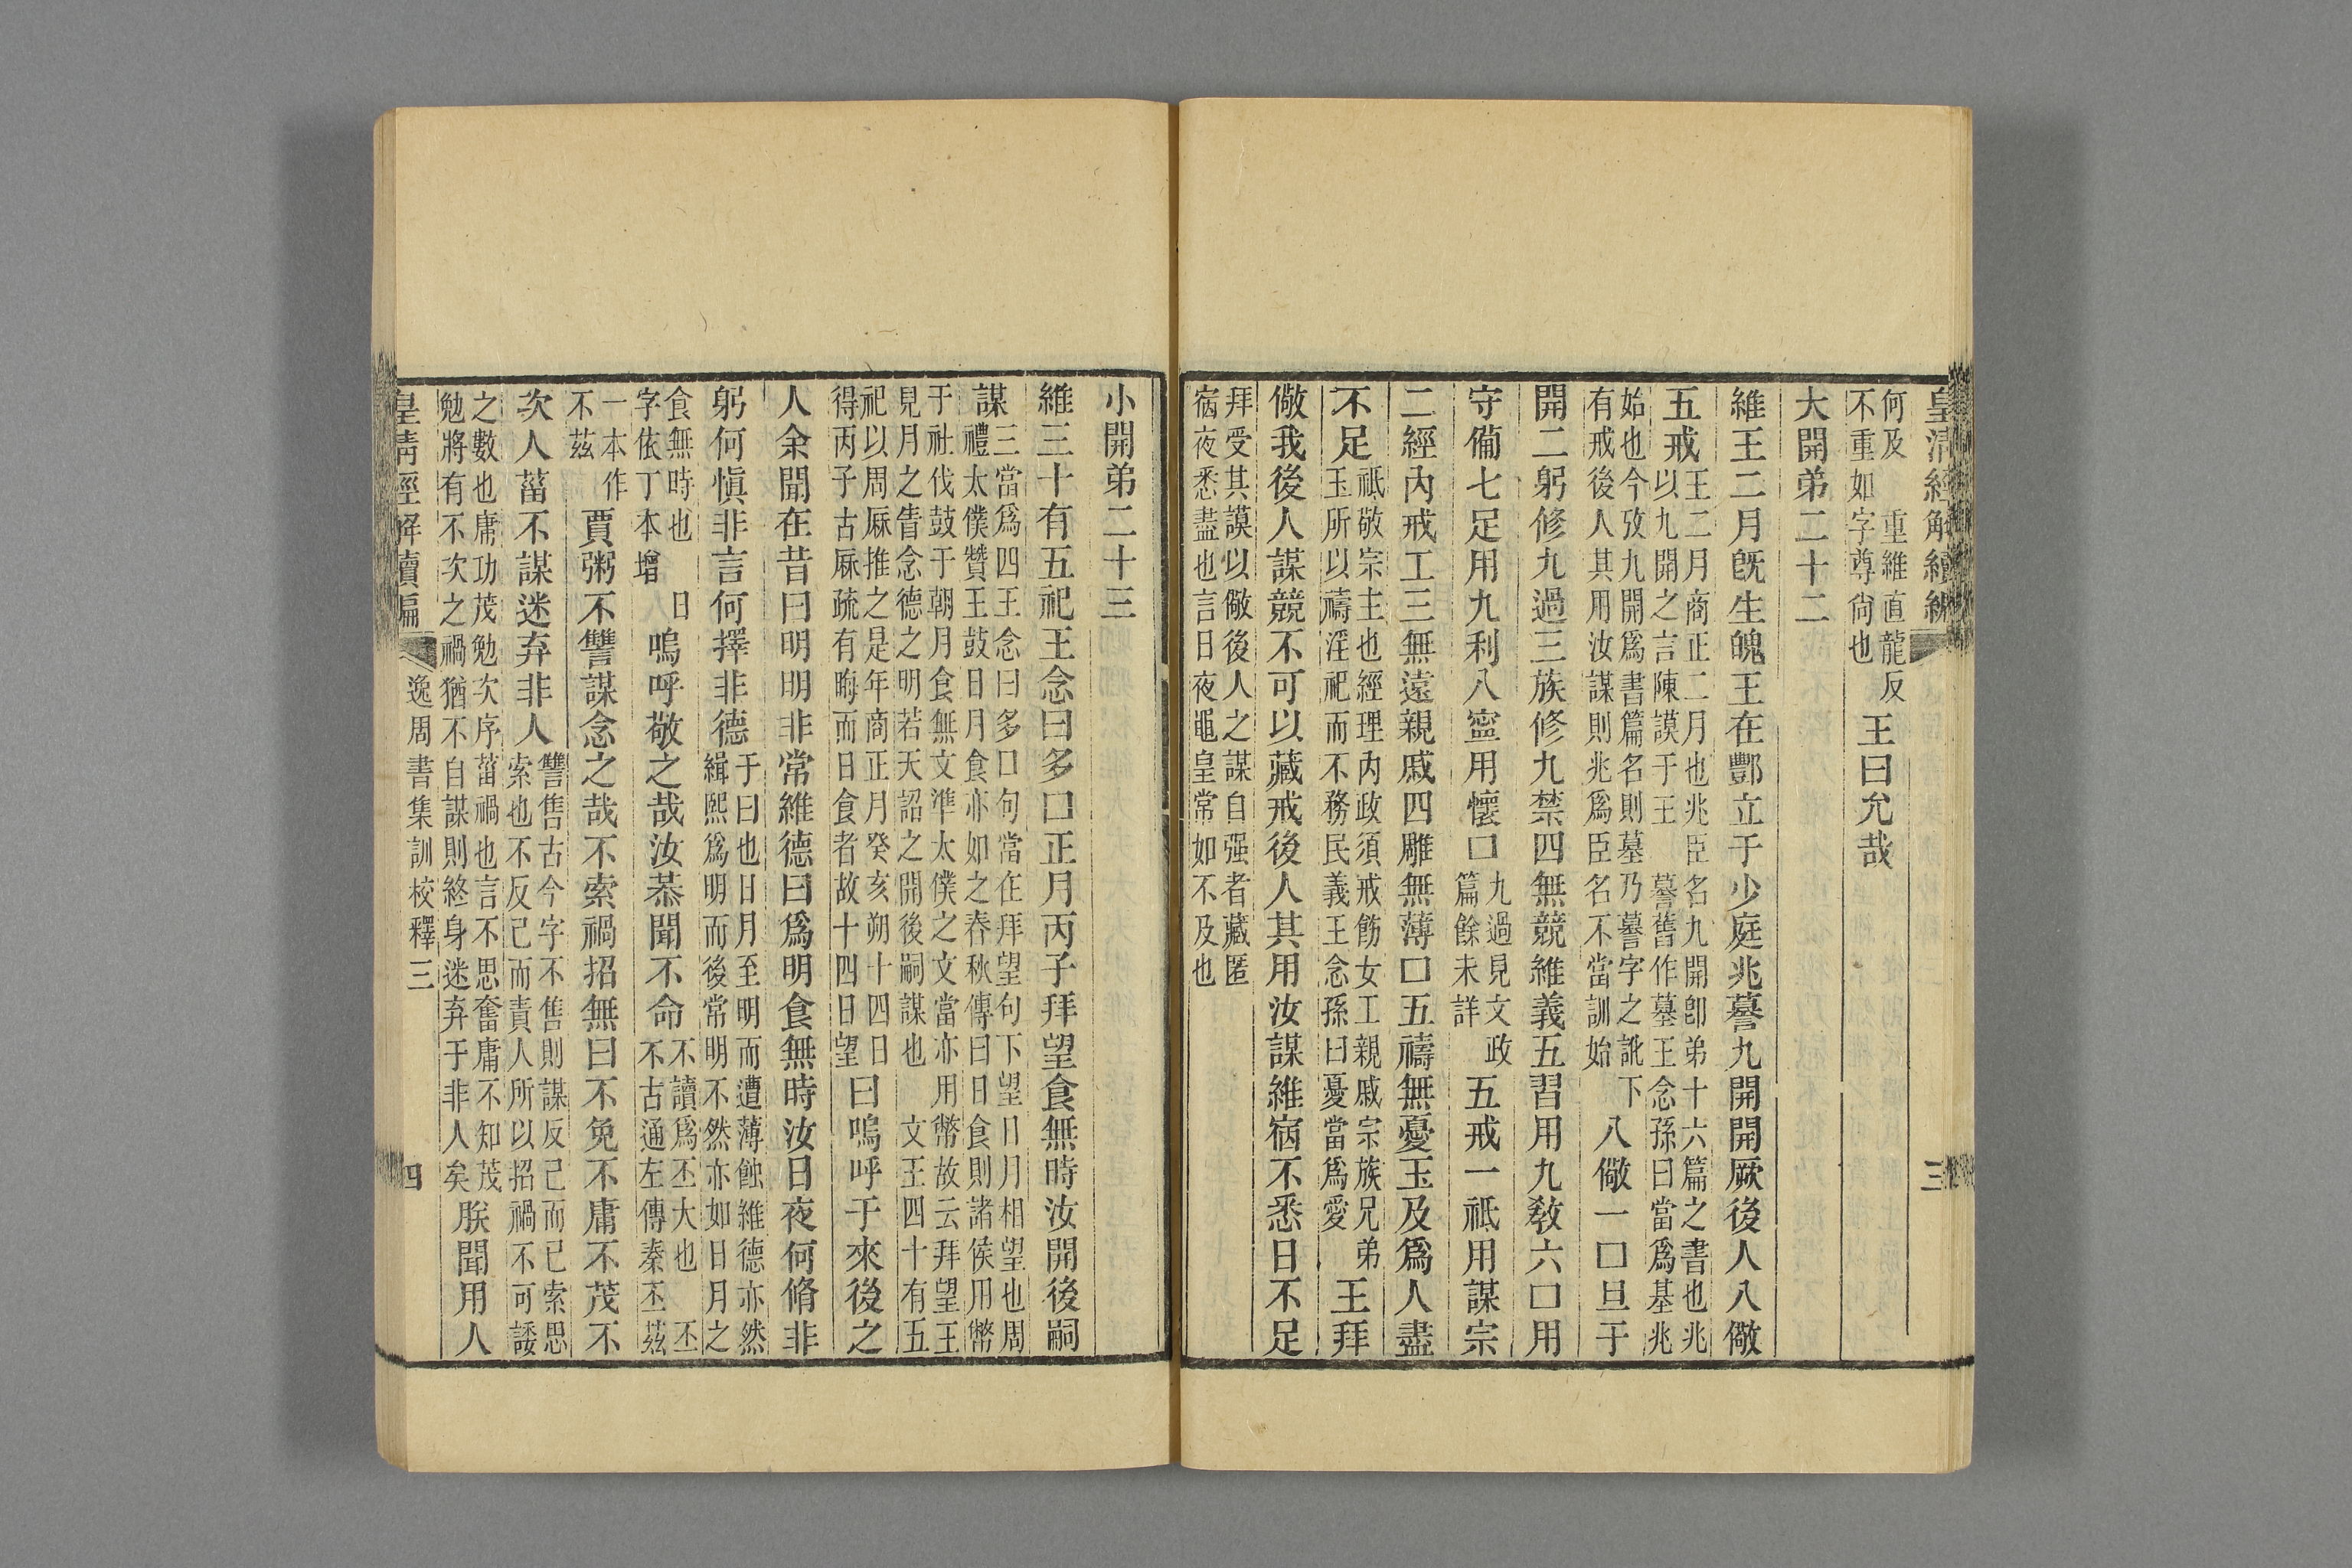 皇清經解續編
三
何及　重維直龍反
不重如字尊尙也
王曰允哉
大開弟二十二
維王二月旣生魄王在酆立于少庭兆謩九開開厥後人八儆
五戒
王二月商正二月也兆臣名九開卽弟十六篇之書也兆
以九開之言陳謨于王　謩舊作墓王念孫曰當爲基兆
始也今攷九開爲書篇名則墓乃謩字之訛下
有戒後人其用汝謀則兆爲臣名不當訓始
八儆一囗旦于
開二躬修九過三族修九禁四無競維義五習用九敎六囗用
守備七足用九利八寍用懷囗
九過見文政
篇餘未詳
五戒一祗用謀宗
二經內戒工三無遠親戚四雕無薄囗五禱無憂玉及爲人盡
不足
祗敬宗主也經理內政須戒飭女工親戚宗族兄弟
玉所以禱淫祀而不務民義王念孫曰憂當爲愛
王拜
儆我後人謀競不可以藏戒後人其用汝謀維宿不悉日不足
拜受其謨以儆後人之謀自强者藏匿
宿夜悉盡也言日夜黽皇常如不及也
小開弟二十三
維三十有五祀王念曰多囗正月丙子拜望食無時汝開後嗣
謀
三當爲四王念曰多囗句當在拜望句下望日月相望也周
禮太僕贊王鼓日月食亦如之春秋傳曰日食則諸侯用幣
于社伐鼓于朝月食無文準太僕之文當亦用幣故云拜望王
見月之眚念德之明若天詔之開後嗣謀也　文王四十有五
祀以周厤推之是年商正月癸亥朔十四日
得丙子古厤疏有晦而日食者故十四日望
曰嗚呼于來後之
人余聞在昔曰明明非常維德曰爲明食無時汝日夜何脩非
躬何愼非言何擇非德
于曰也日月至明而遭薄蝕維德亦然
緝熙爲明而後常明不然亦如日月之
食無時也　日
字依丁本增
嗚呼敬之哉汝恭聞不命
不讀爲丕大也　丕
不古通左傳秦丕茲
一本作
不茲
賈粥不讐謀念之哉不索禍招無曰不免不庸不茂不
次人葘不謀迷弃非人
讐售古今字不售則謀反己而已索思
索也不反己而責人所以招禍不可諉
之數也庸功茂勉次序葘禍也言不思奮庸不知茂
勉將有不次之禍猶不自謀則終身迷弃于非人矣
朕聞用人
皇清經解續編
逸周書集訓校釋三
四